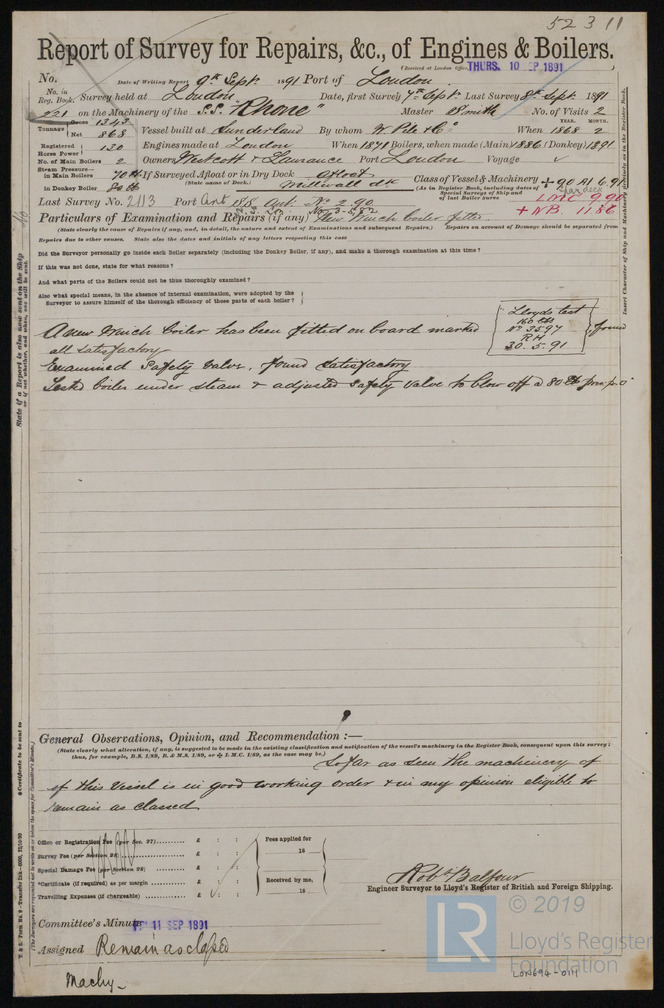 52311
Report of Survey for Repairs, &c., of Engines & Boilers.
(Received at London Office THURS. 10 SEP 1891)
No. Date of Writing Report 9th Sept. 1891 Port of London
No. in Reg. Book. Survey held at London. Date, first Survey 7th Sept. Last Survey 8th Sept 1891
221 on the Machinery of the S.S. "Rhone" Master Smith No. of Visits 2
Tonnage Gross 1343 Net 868 Vessel built at Sunderland By whom W. Pile & Co When 1868 YEAR. MONTH. 2
Registered Horse Power 130 Engines made at London When 1871 Boilers, when made (Main) 1886 (Donkey) 1891
No. of Main Boilers 2 Owners Westcott & Laurance Port London Voyage
Steam Pressure— in Main Boilers 70 lb If Surveyed Afloat or in Dry Dock Afloat
(State name of Dock.) Millwall dk
in Donkey Boiler 80 lb
Class of Vessel & Machinery + 90 A1 6.91
(As in Register Book, including dates of Special Surveys of Ship and of last Boiler Surve
LMC 9.90
+ NB. 11.86
Last Survey No. 2113 Port Ant No 2.90
Particulars of Examination and Repairs (if any) New Winch boiler fitted
(State clearly the cause of Repairs if any, and, in detail, the nature and extent of Examinations and subsequent Repairs.) Repairs on account of Damage should be separated from
Repairs due to other causes. State also the dates and initials of any letters respecting this case
Did the Surveyor personally go inside each Boiler separately (including the Donkey Boiler, if any), and make a thorough examination at this time?
If this was not done, state for what reasons?
And what parts of the Boilers could not be thus thoroughly examined?
Also what special means, in the absence of internal examination, were adopted by the Surveyor to assure himself of the thorough efficiency of those parts of each boiler?
A new Winch boiler has been fitted on board marked
Lloyds test
160 lbs
No 3597
RH
30.5.91
found
all satisfactory
Examined Safety Valve, found satisfactory
Tested boiler under steam & adjusted Safety Valve to blow off @ 80 lb
General Observations, Opinion, and Recommendation :—
(State clearly what alteration, if any, is suggested to be made in the existing classification and notification of the vessel's machinery in the Register Book, consequent upon this survey;
thus, for example, B.S. 1/89, B. & M.S. 1/89, or L.M.C. 1/89, as the case may be.)
So far as seen the machinery of
of this Vessel is in good working order & in my opinion eligible to
remain as classed
Office or Registration Fee (per Sec. 27) £ : :
Survey Fee (per Section 28) £ : :
Special Damage Fee (per Section 28) £ : :
Certificate (if required) as per margin £ : :
Travelling Expenses (if chargeable) £ : :
Fees applied for
18
Received by me,
18
Robt Balfour
Engineer Surveyor to Lloyd's Register of British and Foreign Shipping.
Committee's Minute 11 SEP 1891
Assigned Remain as classed
Machy.
LON694-0111
© 2019
LR
Lloyd's Register
Foundation
Insert Character of Ship and Machinery precisely as in the Register Book.